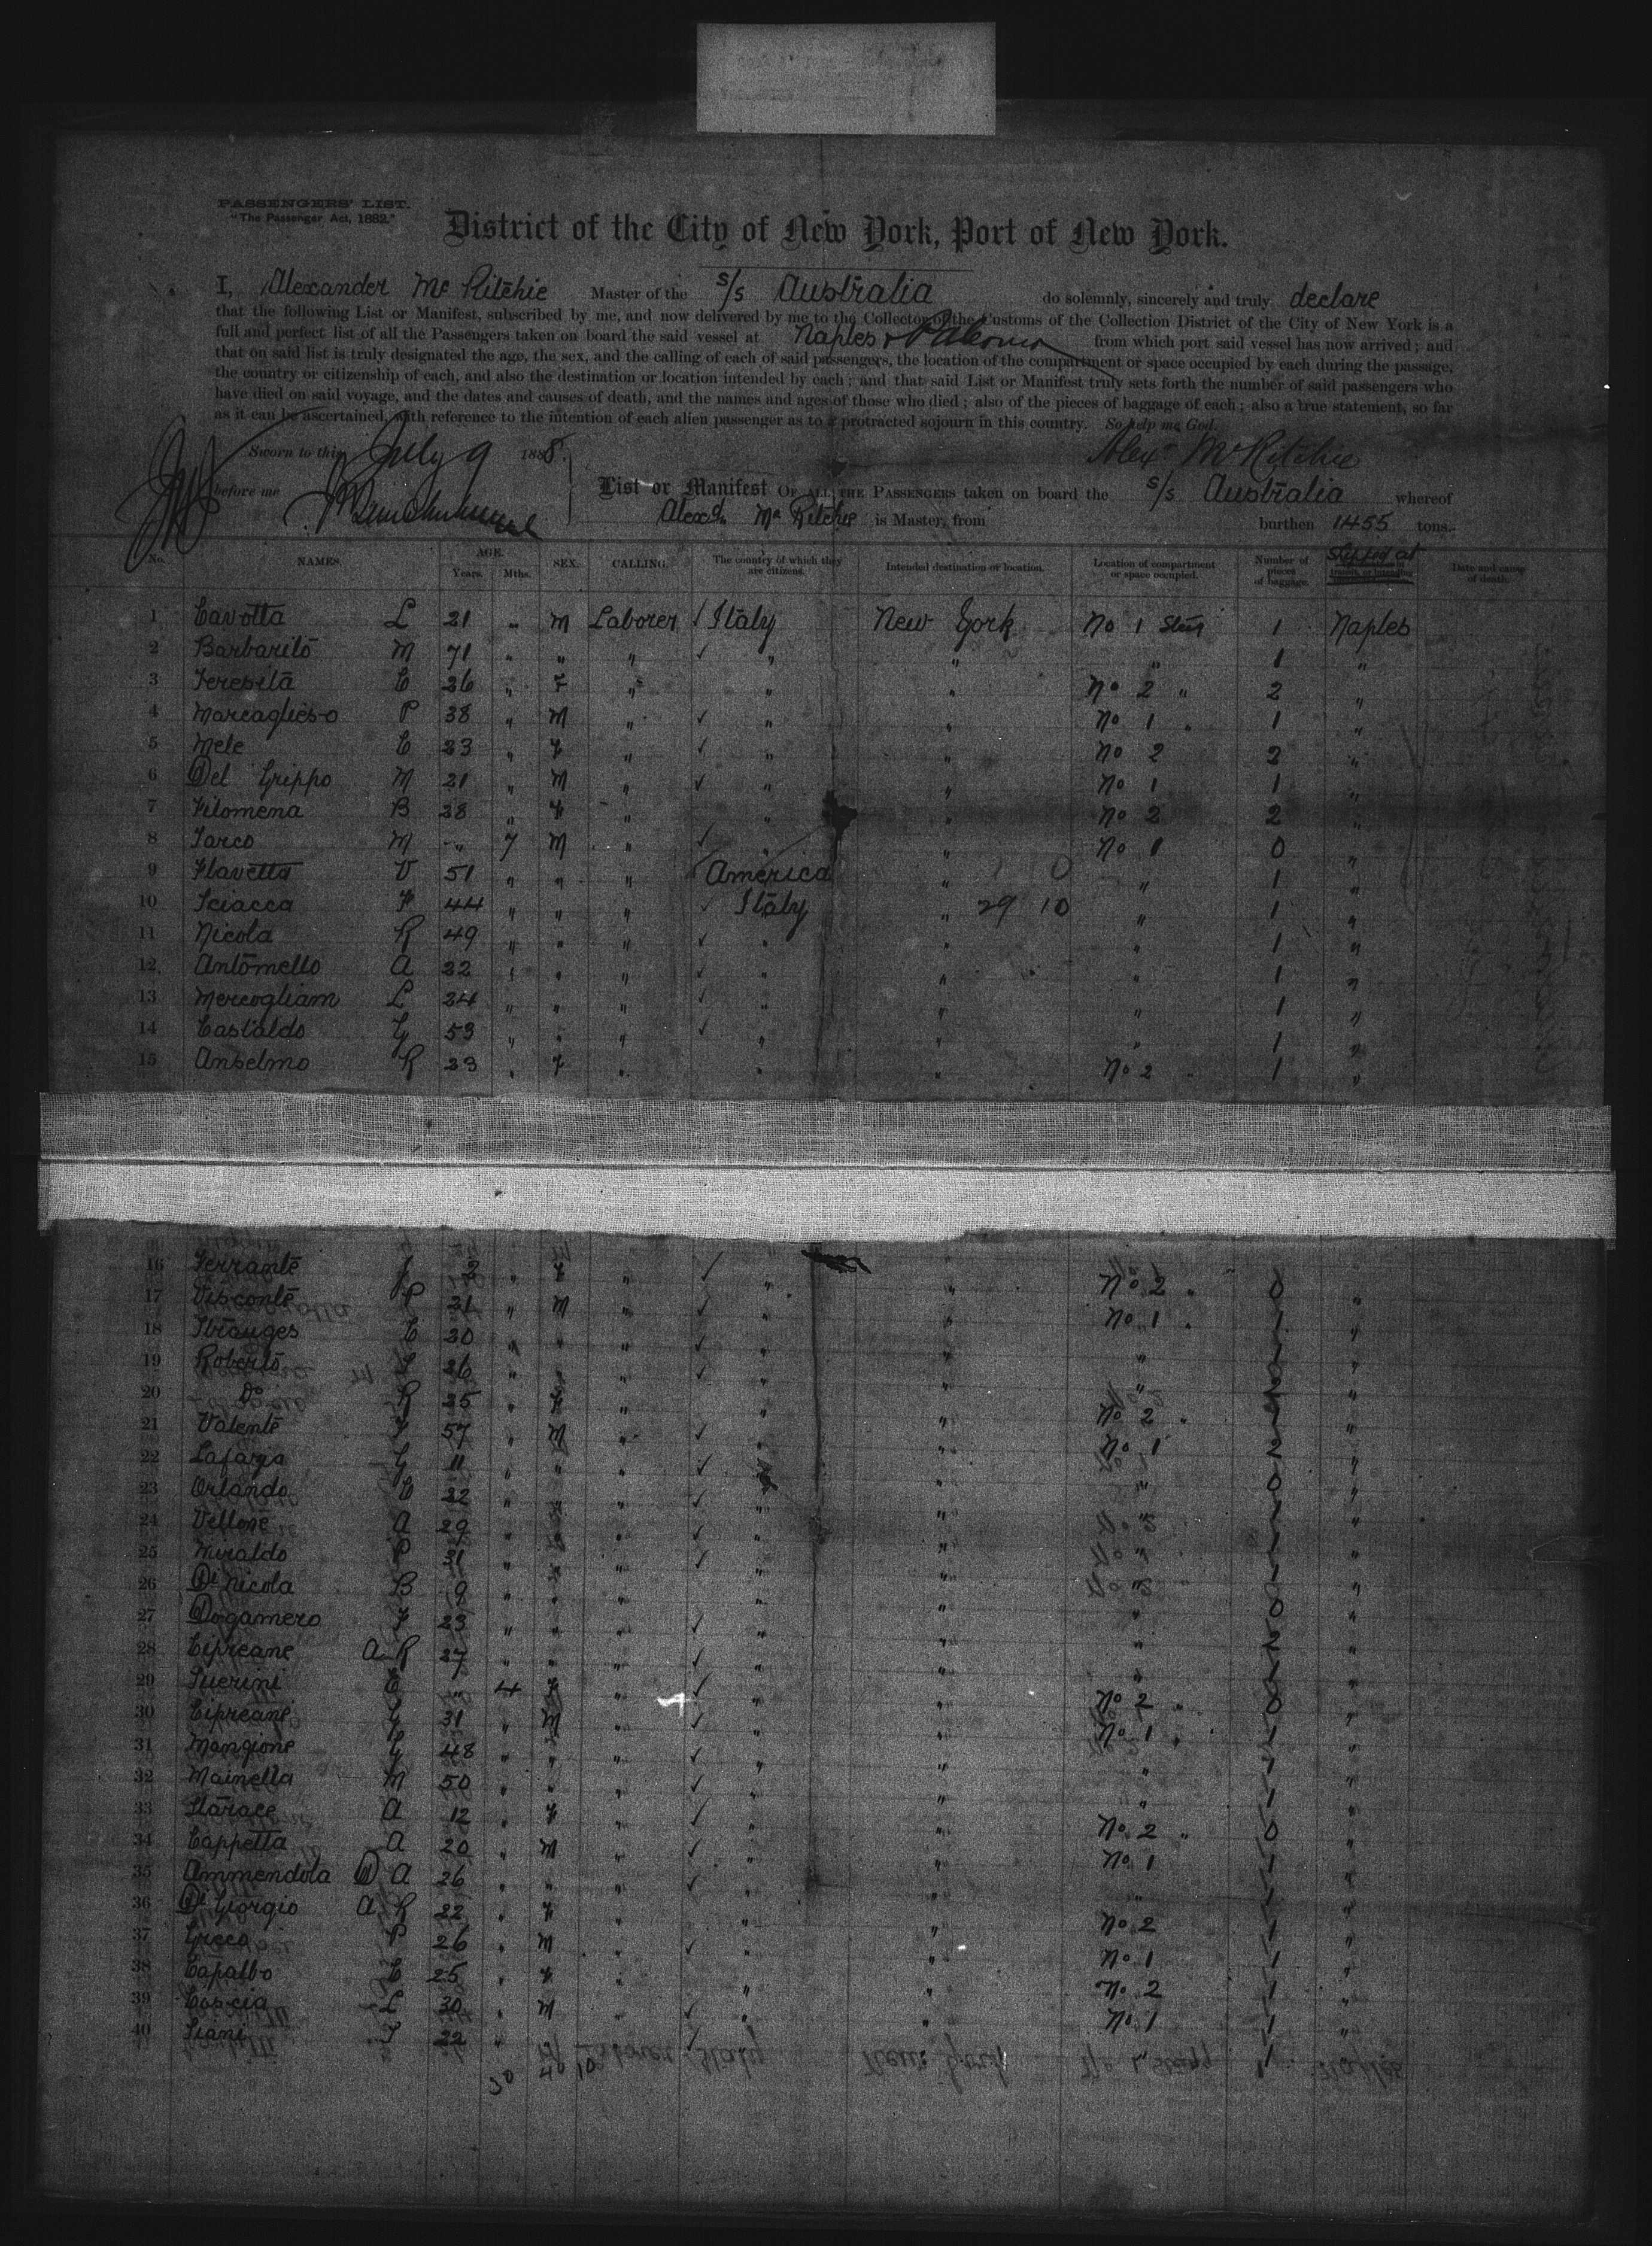 PASSENGERS' LIST.
"The Passenger Act, 1882."
District of the City of New York, Port of New York.
I, Alexander Mc Ritchie Master of the s/s Australia do solemnly, sincerely and truly declare
that the following List or Manifest, subscribed by me, and now delivered by me to the Collector of the Customs of the Collection District of the City of New York is a
full and perfect list of all the Passengers taken on board the said vessel at Naples & Palermo from which port said vessel has now arrived; and
that on said list is truly designated the age, the sex, and the calling of each of said passengers, the location of the compartment or space occupied by each during the passage,
the country or citizenship of each, and also the destination or location intended by each; and that said List or Manifest truly sets forth the number of said passengers who
have died on said voyage, and the dates and causes of death, and the names and ages of those who died; also of the pieces of baggage of each; also a true statement, so far
as it can be ascertained, with reference to the intention of each alien passenger as to a protracted sojourn in this country. So help me God.
Sworn to this July 9 1888. Alexr McRitchie
before me
List or Manifest OF ALL THE PASSENGERS taken on board the s/s Australia whereof
Alexdr Mc Ritchie is Master, from burthen 1455 tons.
No. NAMES. AGE. Years. Mths. SEX. CALLING. The country of which they are citizens. Intended destination or location. Location of compartment or space occupied. Number of pieces of baggage. Shipped at Date and cause of death.
1 Cavotta L 21 " M Laborer Italy New York No 1 1 Naples
2 Barbarito M 71 " " " " " " 1 "
3 Teresita C 26 " F " " " No 2 " 2 "
4 P 38 " M " " " No 1 " 1 "
5 Mele C 23 " F " " " No 2 2 "
6 Del Grippo M 21 " M " " " No 1 1 "
7 Filomena B 28 " F " " " No 2 2 "
8 Tarco M " 7 M " " " No 1 0 "
9 Flavetta V 51 " " " America " " 1 "
10 Sciacca F 44 " " " Italy " 29 10 " 1 "
11 Nicola R 49 " " " " " " 1 "
12 Antomello A 22 " " " " " " 1 "
13 Mercogliam L 24 " " " " " " 1 "
14 Castaldo G 53 " " " " " " 1 "
15 Anselmo R 23 " F " " " No 2 " 1 "
16 Ferrante 2 " F " " " No 2 " 0 "
17 Visconte P 21 " M " " " No 1 " 1 "
18 C 30 " " " " " " 1 "
19 Roberto 26 " " " " " " "
20 Do R 25 " F " " " No 2 " "
21 Valente 57 " M " " " No 1 2 "
22 G 11 " " " " " " 0 "
23 Orlando C 22 " " " " " "
24 Vellone A 29 " " " " " "
25 Muraldo P 31 " " " " " "
26 Di Nicola B 9 " " " " " " 0 "
27 23 " " " " " " "
28 Cipreane A. R 27 " " " " " " "
29 Guerini C " 4 F " " " No 2 " 0 "
30 Cipreane G 31 " M " " " No 1 " 1 "
31 Mangione G 48 " " " " " " 1 "
32 Mainella M 50 " " " " " " 1 "
33 Starace A 12 " F " " " No 2 " 0 "
34 Cappetta A 20 " M " " " No 1 1 "
35 Ammendola D A 26 " " " " " " 1 "
36 Di Giorgio A. R 22 " F " " " No 2 1 "
37 Greco P 26 " M " " " No 1 1 "
38 Capalbo C 25 " F " " " No 2 1 "
39 Coscia L 30 " M " " " No 1 1 "
40 22 " " 1
30 40 10